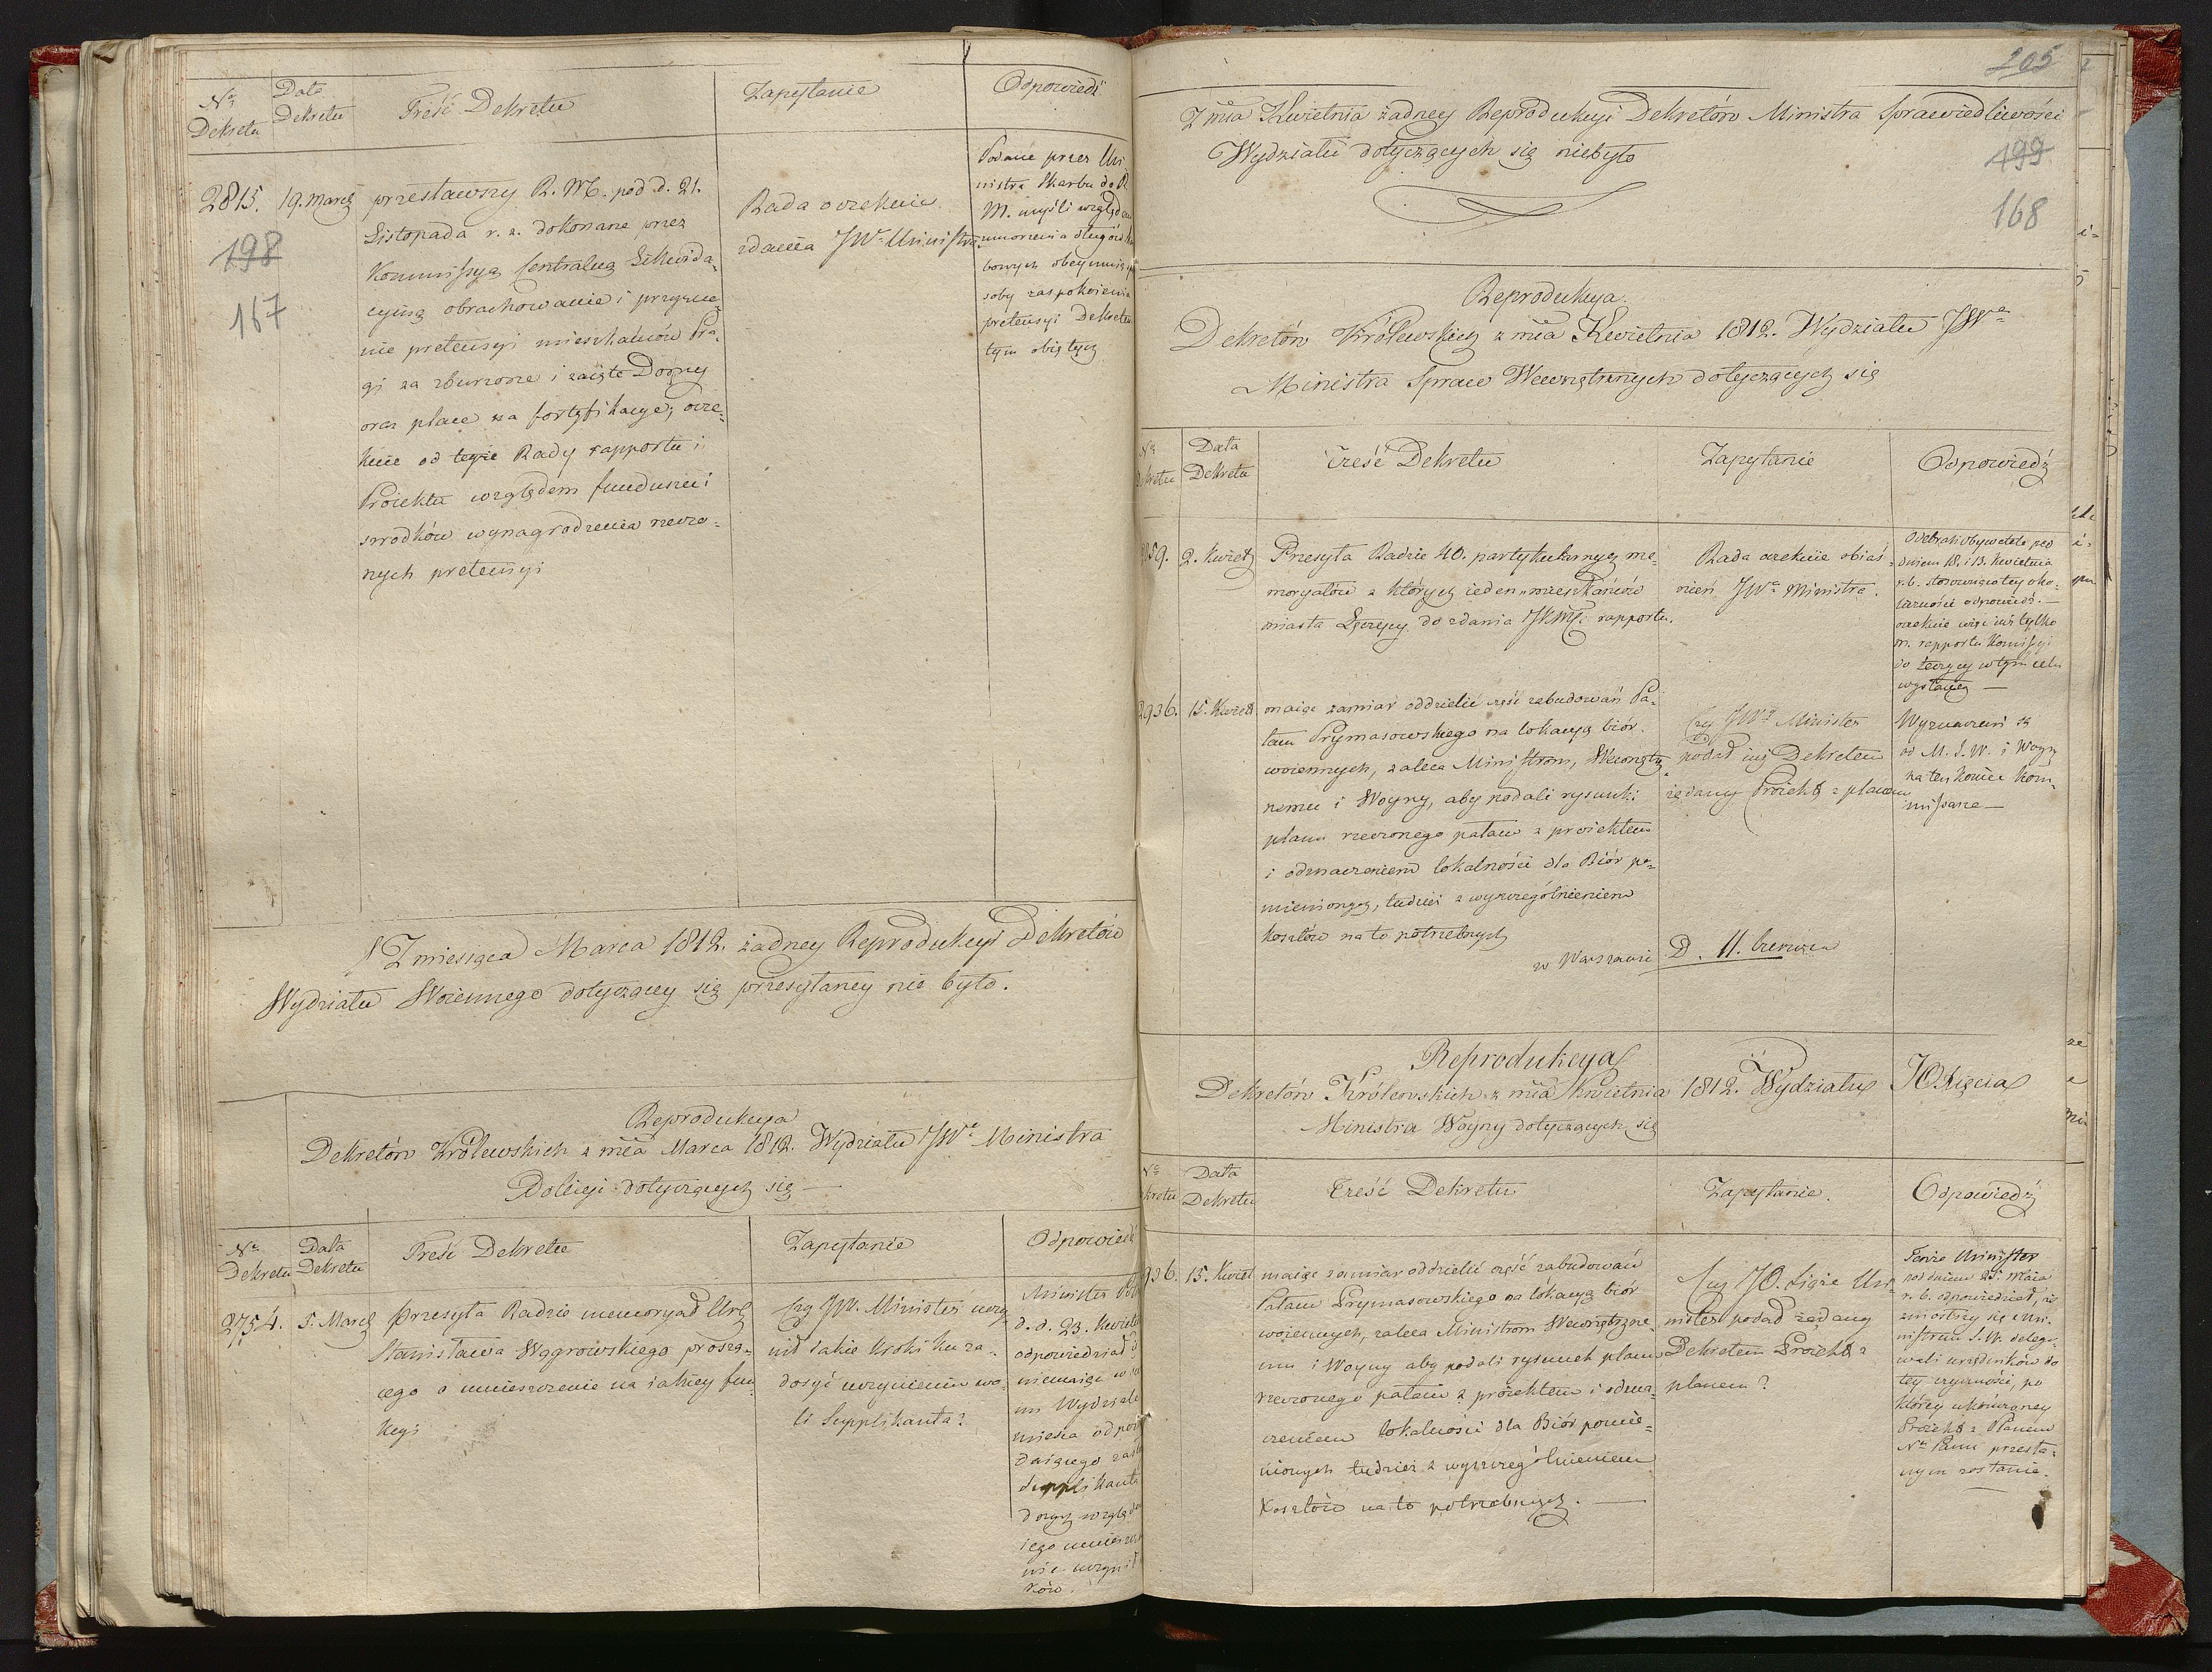 Nr Dekretu
Data Dekretu
Treść Dekretu
Zapytanie
Odpowiedź
2815.
198
167
19. Marca
przesławszy R. M. pod d. 21.
Listopada r. z. dokonane przez
Kommissyą Centralną Likwida-
cyiną obrachowanie i przyzna-
nie pretensyi mieszkańców Pra-
gi za zburzone i zaięte Domy
oraz place na fortyfikacye, ocze-
kuie od teyże Rady rapportu i
Proiektu względem funduszu i
srodków wynagrodzenia rzeczo-
nych pretensyi
Rada oczekuie
zdania JWo Ministra
Podane przez Mi
nistra Skarbu do R
M. myśli względe
umorzenia długów
bowych obeymuią
soby zaspokoienia
pretensyi Dekretem
tym obiętych
Z miesiąca Marca 1812. żadney Reprodukcyi Dekretów
Wydziału Woiennego dotyczącey się przesyłaney nie było.
Reprodukcya
Dekretów Królewskich z mca Marca 1812. Wydziału JWo Ministra
Policyi dotyczących się
Nr Dekretu
Data Dekretu
Treść Dekretu
Zapytanie
Odpowiedź
2754.
5. Marca
Przesyła Radzie memoryał Urg
Stanisława Wągrowskiego proszą-
cego o umieszczenie na iakiey fun
kcyi
Czy JW. Minister uczy
nił iakie kroki ku za-
dosyć uczynieniu wo-
li Supplikanta?
Minister
d. d. 23. Kwiet
odpowiedział
niemaiąc w
im Wydziale
mieisca odpo
daiącego
Supplikanta
dotych wzglę
iego umieszcze
nie uczynił
ków.
205
Z mca Kwietnia żadney Reprodukcyi Dekretów Ministra Sprawiedliwości
Wydziału dotyczących się niebyło
199
168
Reprodukcya
Dekretów Królewskich z mca Kwietnia 1812. Wydziału JWo
Ministra Spraw Wewnętrznych dotyczących się
Nr
Data Dekretu
Treść Dekretu
Zapytanie
Odpowiedź
859.
2. Kwiet
Przesyła Radzie 40. partykularnych me-
moryałów z których ieden mieszkańców
miasta Łęczycy do zdania JKMci rapportu.
Rada oczekuie obiaś-
nień JWo Ministra.
Odebrali obywatele pod
dniem 18. i 13. Kwietnia
r. b. stosowną do tey oko-
liczności odpowiedź.—
oczekuie więc iuż tylko
m. rapportu Komissyi
do Łęczycy w tym celu
wysłaney —
2936.
15. Kwiet
maiąc zamiar oddzielić część zabudowań Pa-
łacu Prymasowskiego na lokacyą biór
woiennych, zaleca Ministrom, Wewnętrz-
nemu i Woyny, aby podali rysunki
planu rzeczonego pałacu z proiektem
i odznaczeniem lokalności dla Biór po-
mienionych, tudzież z wyszczególnieniem
kosztów na to potrzebnych
w Warszawie D. 11. Czerwca
Czy JWny Minister
podał tuż Dekretem
żądany Proiekt z planem
Wyznaczeni są
od M. S. W. i Woyny
na ten koniec Kom-
missarze—
Reprodukcya
Dekretów Królewskich z mca Kwietnia 1812. Wydziału JO Xięcia
Ministra Woyny dotyczących się
Data Dekretu
Treść Dekretu
Zapytanie.
Odpowiedź
936.
15. Kwiet
maiąc zamiar oddzielić część zabudowań
Pałacu Prymasowskiego na lokacyą biór
woiennych, zaleca Ministrom Wewnętrzne-
mu i Woyny aby podali rysunek planu
rzeczonego pałacu z proiektem i odzna-
czeniem lokalności dla Biór pomie-
nionych tudzież z wyszczególnieniem
Kosztów na to potrzebnych. —
Czy JO. Xiąże Mi-
nister podał żądany
Dekretem Proiekt z
planem?
Tenże Minister
pod dniem 25. Maia
r. b. odpowiedział, iż
zniosłszy się z Mi-
nistrem S. W. delego-
wali urzędników do
tey czynności, po
którey ukończoney
Proiekt z Planem
Nu Panu przesła-
nym zostanie.